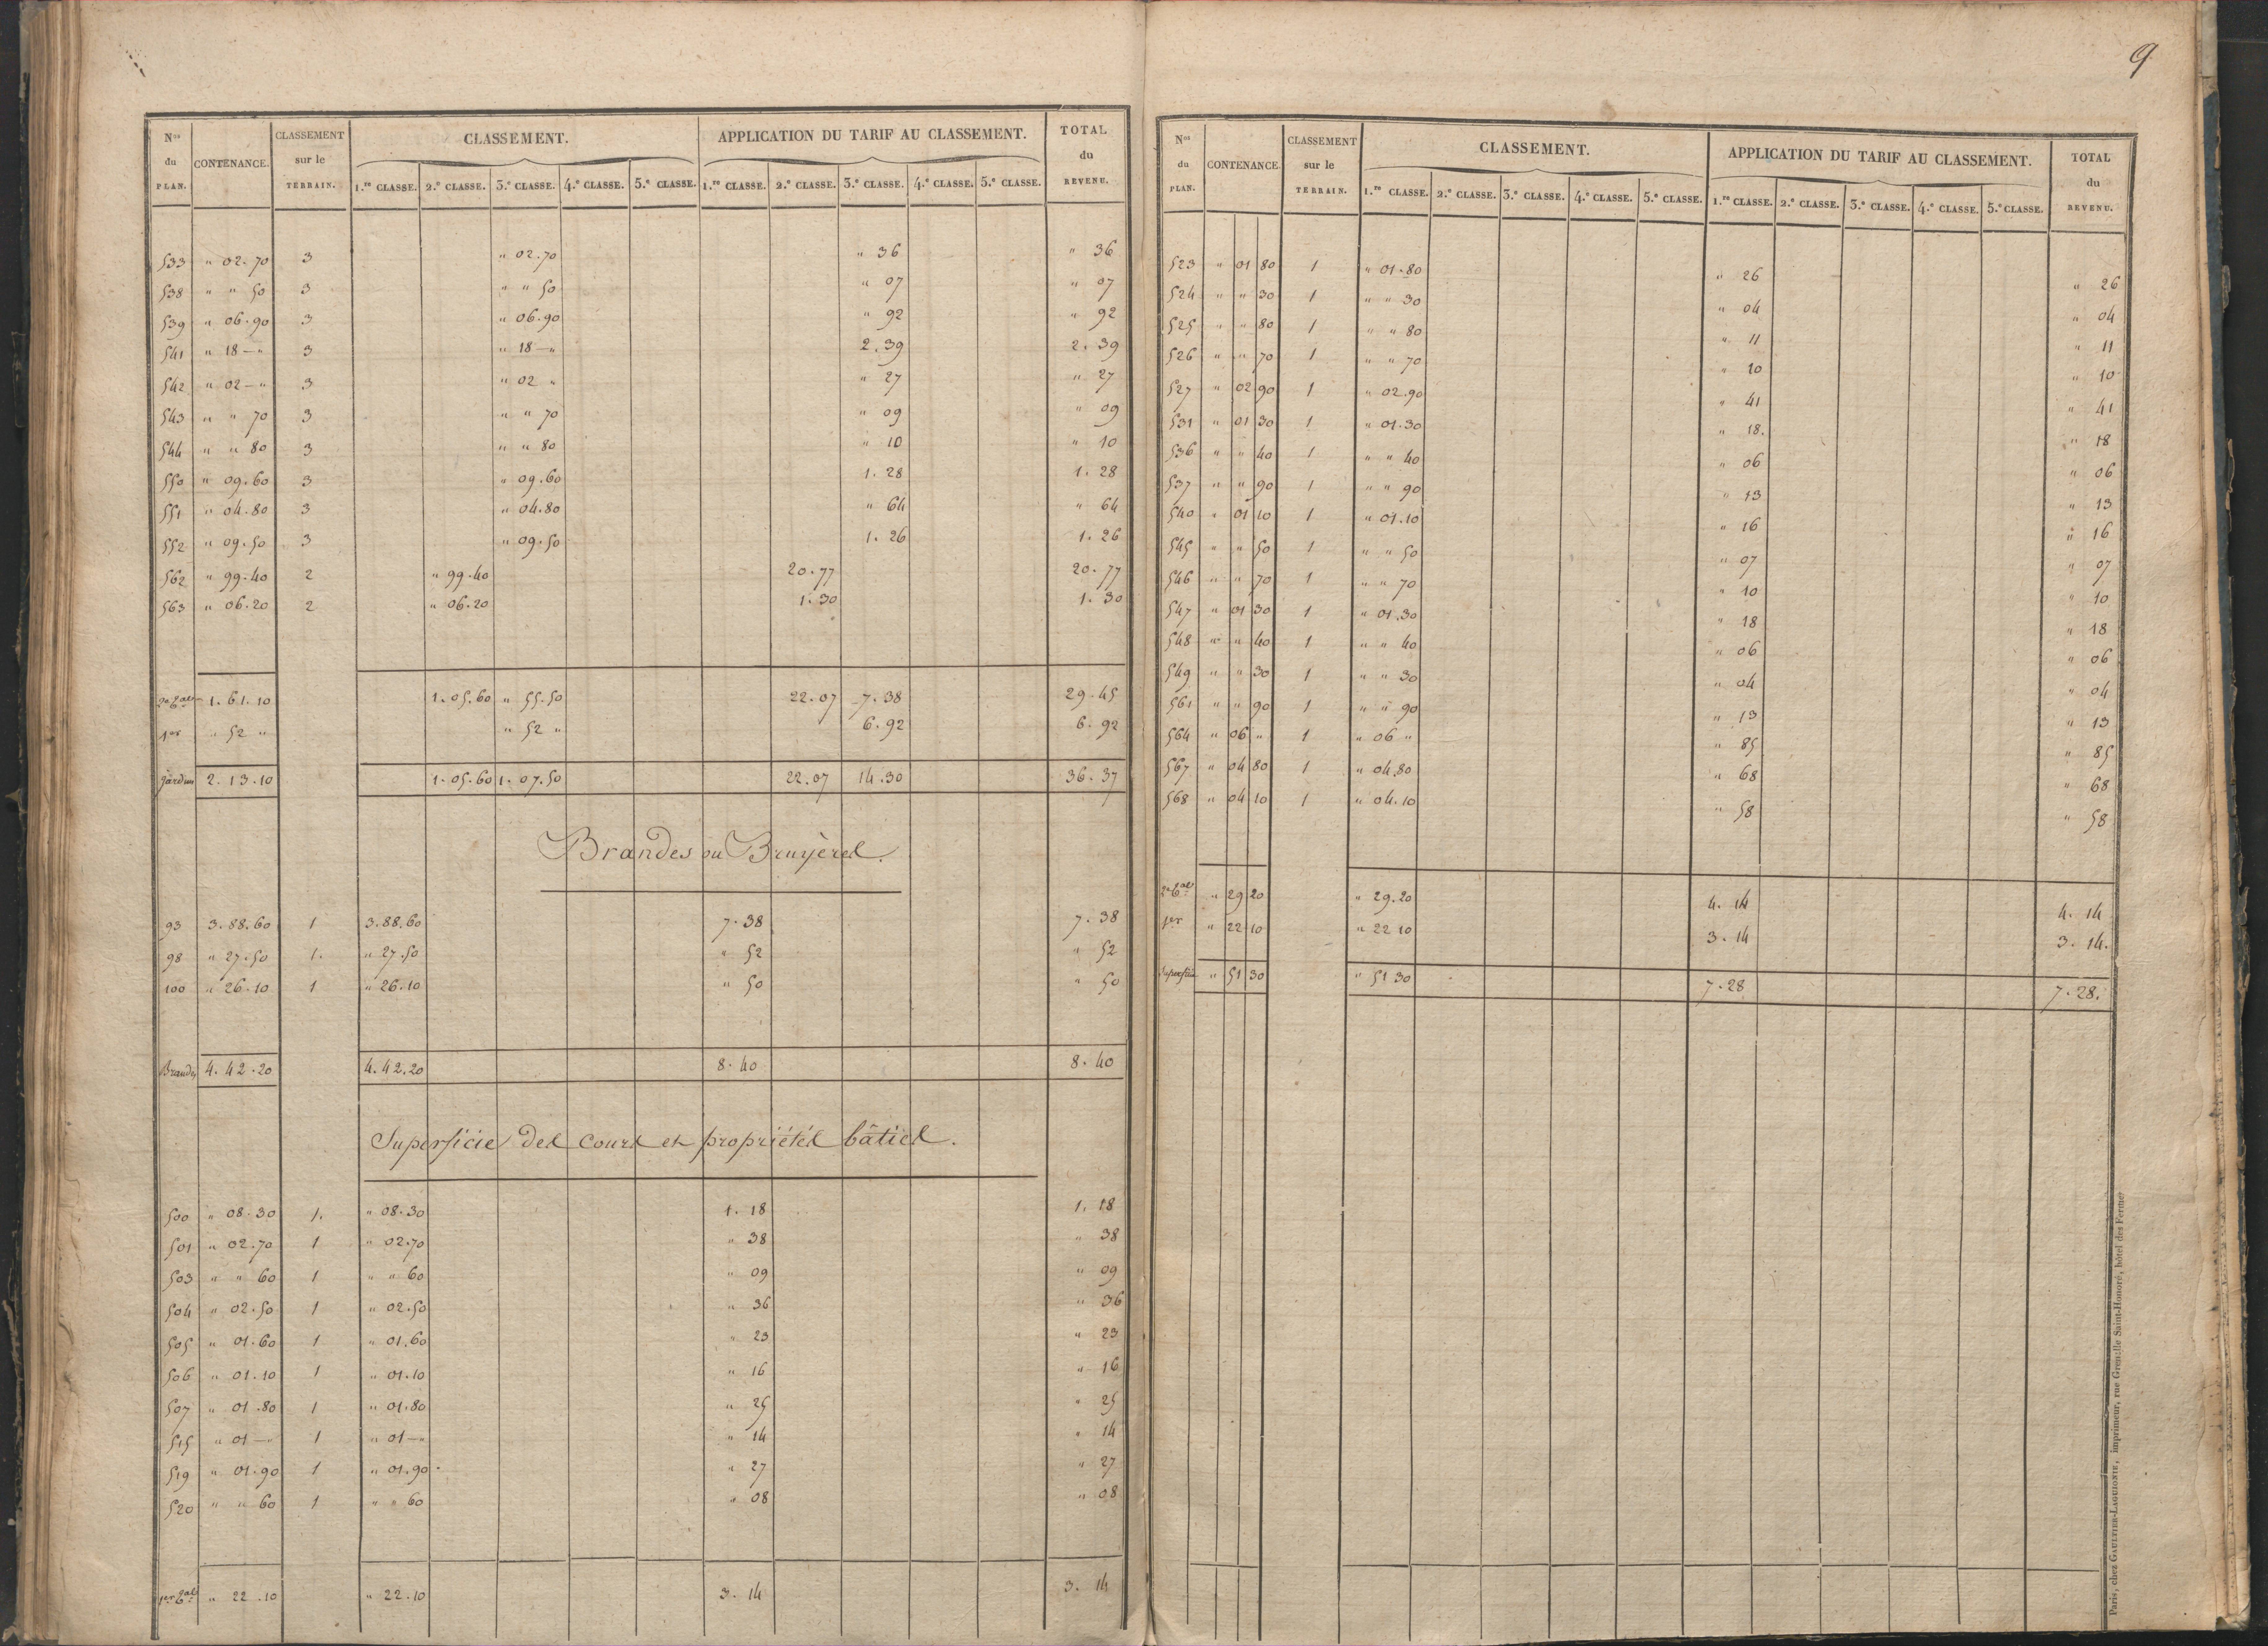 9
Nos du PLAN. CONTENANCE. CLASSEMENT sur le TERRAIN. CLASSEMENT. APPLICATION DU TARIF AU CLASSEMENT. TOTAL du REVENU.
1.re CLASSE. 2.e CLASSE. 3.e CLASSE. 4.e CLASSE. 5.e CLASSE. 1.re CLASSE. 2.e CLASSE. 3.e CLASSE. 4.e CLASSE. 5.e CLASSE.
533 " 02.70 3 " 02.70 " 36 " 36
538 " " 50 3 " " 50 " 07 " 07
539 " 06.90 3 " 06.90 " 92 " 92
541 " 18 — " 3 " 18 — " 2.39 2.39
542 " 02 — " 3 " 02 " " 27 " 27
543 " " 70 3 " " 70 " 09 " 09
544 " " 80 3 " " 80 " 10 " 10
550 " 09.60 3 " 09.60 1.28 1.28
551 " 04.80 3 " 04.80 " 64 " 64
552 " 09.50 3 " 09.50 1.26 1.26
562 " 99.40 2 " 99.40 20.77 20.77
563 " 06.20 2 " 06.20 1.30 1.30
1.61.10 1.05.60 " 55.50 22.07 7.38 29.45
1er " 52 " " 52 " 6.92 6.92
Jardins 2.13.10 1.05.60 1.07.50 22.07 14.30 36.37
Brandes ou Bruyères.
93 3.88.60 1 3.88.60 7.38 7.38
98 " 27.50 1. " 27.50 " 52 " 52
100 " 26.10 1 " 26.10 " 50 " 50
Brandes 4.42.20 4.42.20 8.40 8.40
Superficie des cours et propriétés bâties.
500 " 08.30 1. " 08.30 1.18 1.18
501 " 02.70 1 " 02.70 " 38 " 38
503 " " 60 1 " " 60 " 09 " 09
504 " 02.50 1 " 02.50 " 36 " 36
505 " 01.60 1 " 01.60 " 23 " 23
506 " 01.10 1 " 01.10 " 16 " 16
507 " 01.80 1 " 01.80 " 25 " 25
515 " 01 — " 1 " 01 — " " 14 " 14
519 " 01.90 1 " 01.90 " 27 " 27
520 " " 60 1 " " 60 " 08 " 08
" 22.10 " 22.10 3.14 3.14
Nos du PLAN. CONTENANCE. CLASSEMENT sur le TERRAIN. CLASSEMENT. APPLICATION DU TARIF AU CLASSEMENT. TOTAL du REVENU.
1.re CLASSE. 2.e CLASSE. 3.e CLASSE. 4.e CLASSE. 5.e CLASSE. 1.re CLASSE. 2.e CLASSE. 3.e CLASSE. 4.e CLASSE. 5.e CLASSE.
523 " 01 80 1 " 01.80 " 26 " 26
524 " " 30 1 " " 30 " 04 " 04
525 " " 80 1 " " 80 " 11 " 11
526 " " 70 1 " " 70 " 10 " 10
527 " 02 90 1 " 02.90 " 41 " 41
531 " 01 30 1 " 01.30 " 18. " 18
536 " " 40 1 " " 40 " 06 " 06
537 " " 90 1 " " 90 " 13 " 13
540 " 01 10 1 " 01.10 " 16 " 16
545 " " 50 1 " " 50 " 07 " 07
546 " " 70 1 " " 70 " 10 " 10
547 " 01 30 1 " 01.30 " 18 " 18
548 " " 40 1 " " 40 " 06 " 06
549 " " 30 1 " " 30 " 04 " 04
561 " " 90 1 " " 90 " 13 " 13
564 " 06 " 1 " 06 " " 85 " 85
567 " 04 80 1 " 04.80 " 68 " 68
568 " 04 10 1 " 04.10 " 58 " 58
" 29 20 " 29.20 4.14 4.14
1er " 22 10 " 22 10 3.14 3.14.
" 51 30 " 51 30 7.28 7.28.
Paris, chez GAULTIER-LAGUIONIE, imprimeur, rue Grenelle Saint-Honoré, hôtel des Fermes